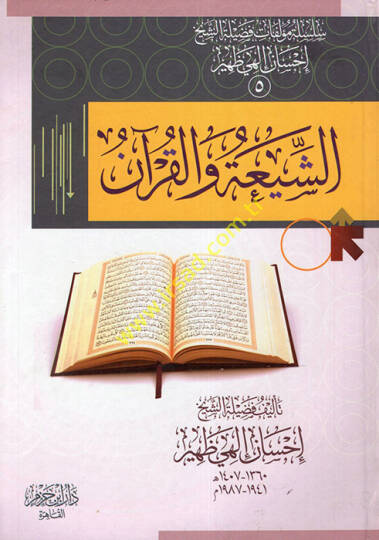 سلسلة مؤلفات فضيلة الشيخ
إحسان إلهي ظهير
٥
الشيعة والقرآن
تأليف فضيلة الشيخ
إحسان إلهي ظهير
١٣٦٠-١٤٠٧هـ
١٩٤١-١٩٨٧م
دار ابن حزم
القاهرة